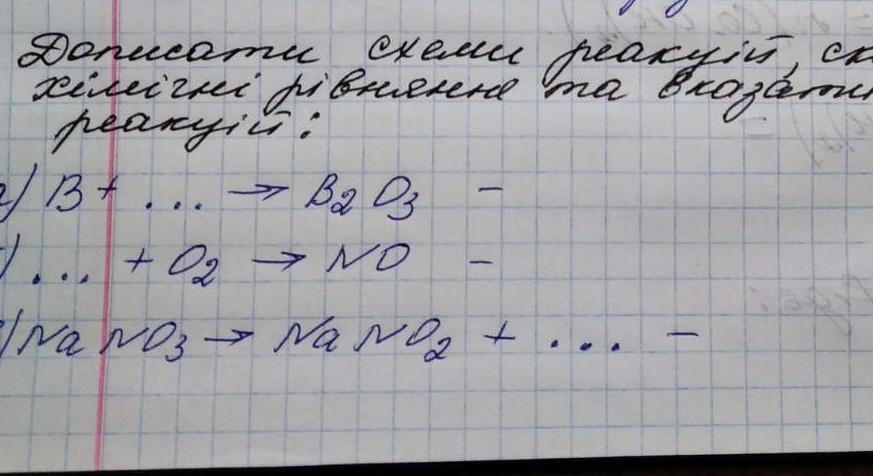 Дописати схеми реакцій, ск
хімічні рівняння та вказати
реакцій:
а) B + ... → B₂O₃ –
) ... + O₂ → NO –
) NaNO₃ → NaNO₂ + ... –